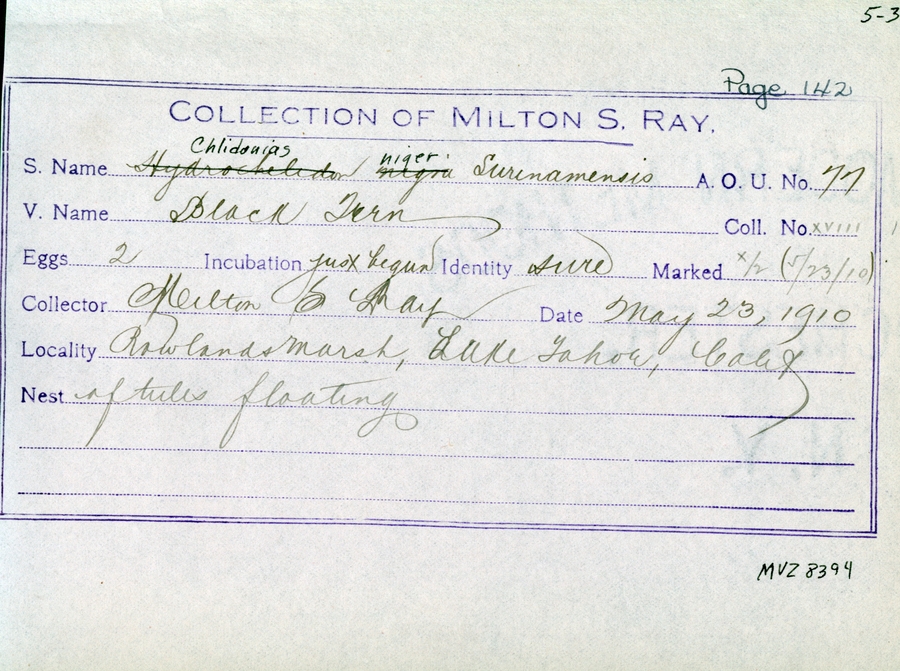 5-3
Page 142
COLLECTION OF MILTON S. RAY.
Chlidonias niger
S. Name Hydrochelidon nigra Surinamensis A. O. U. No. 77
V. Name Black Tern Coll. No. XVIII
Eggs 2 Incubation just begun Identity sure Marked x/2 (5/23/10)
Collector Milton S Ray Date May 23, 1910
Locality Rowlands Marsh, Lake Tahoe, Calif
Nest of tules floating
MVZ 8394